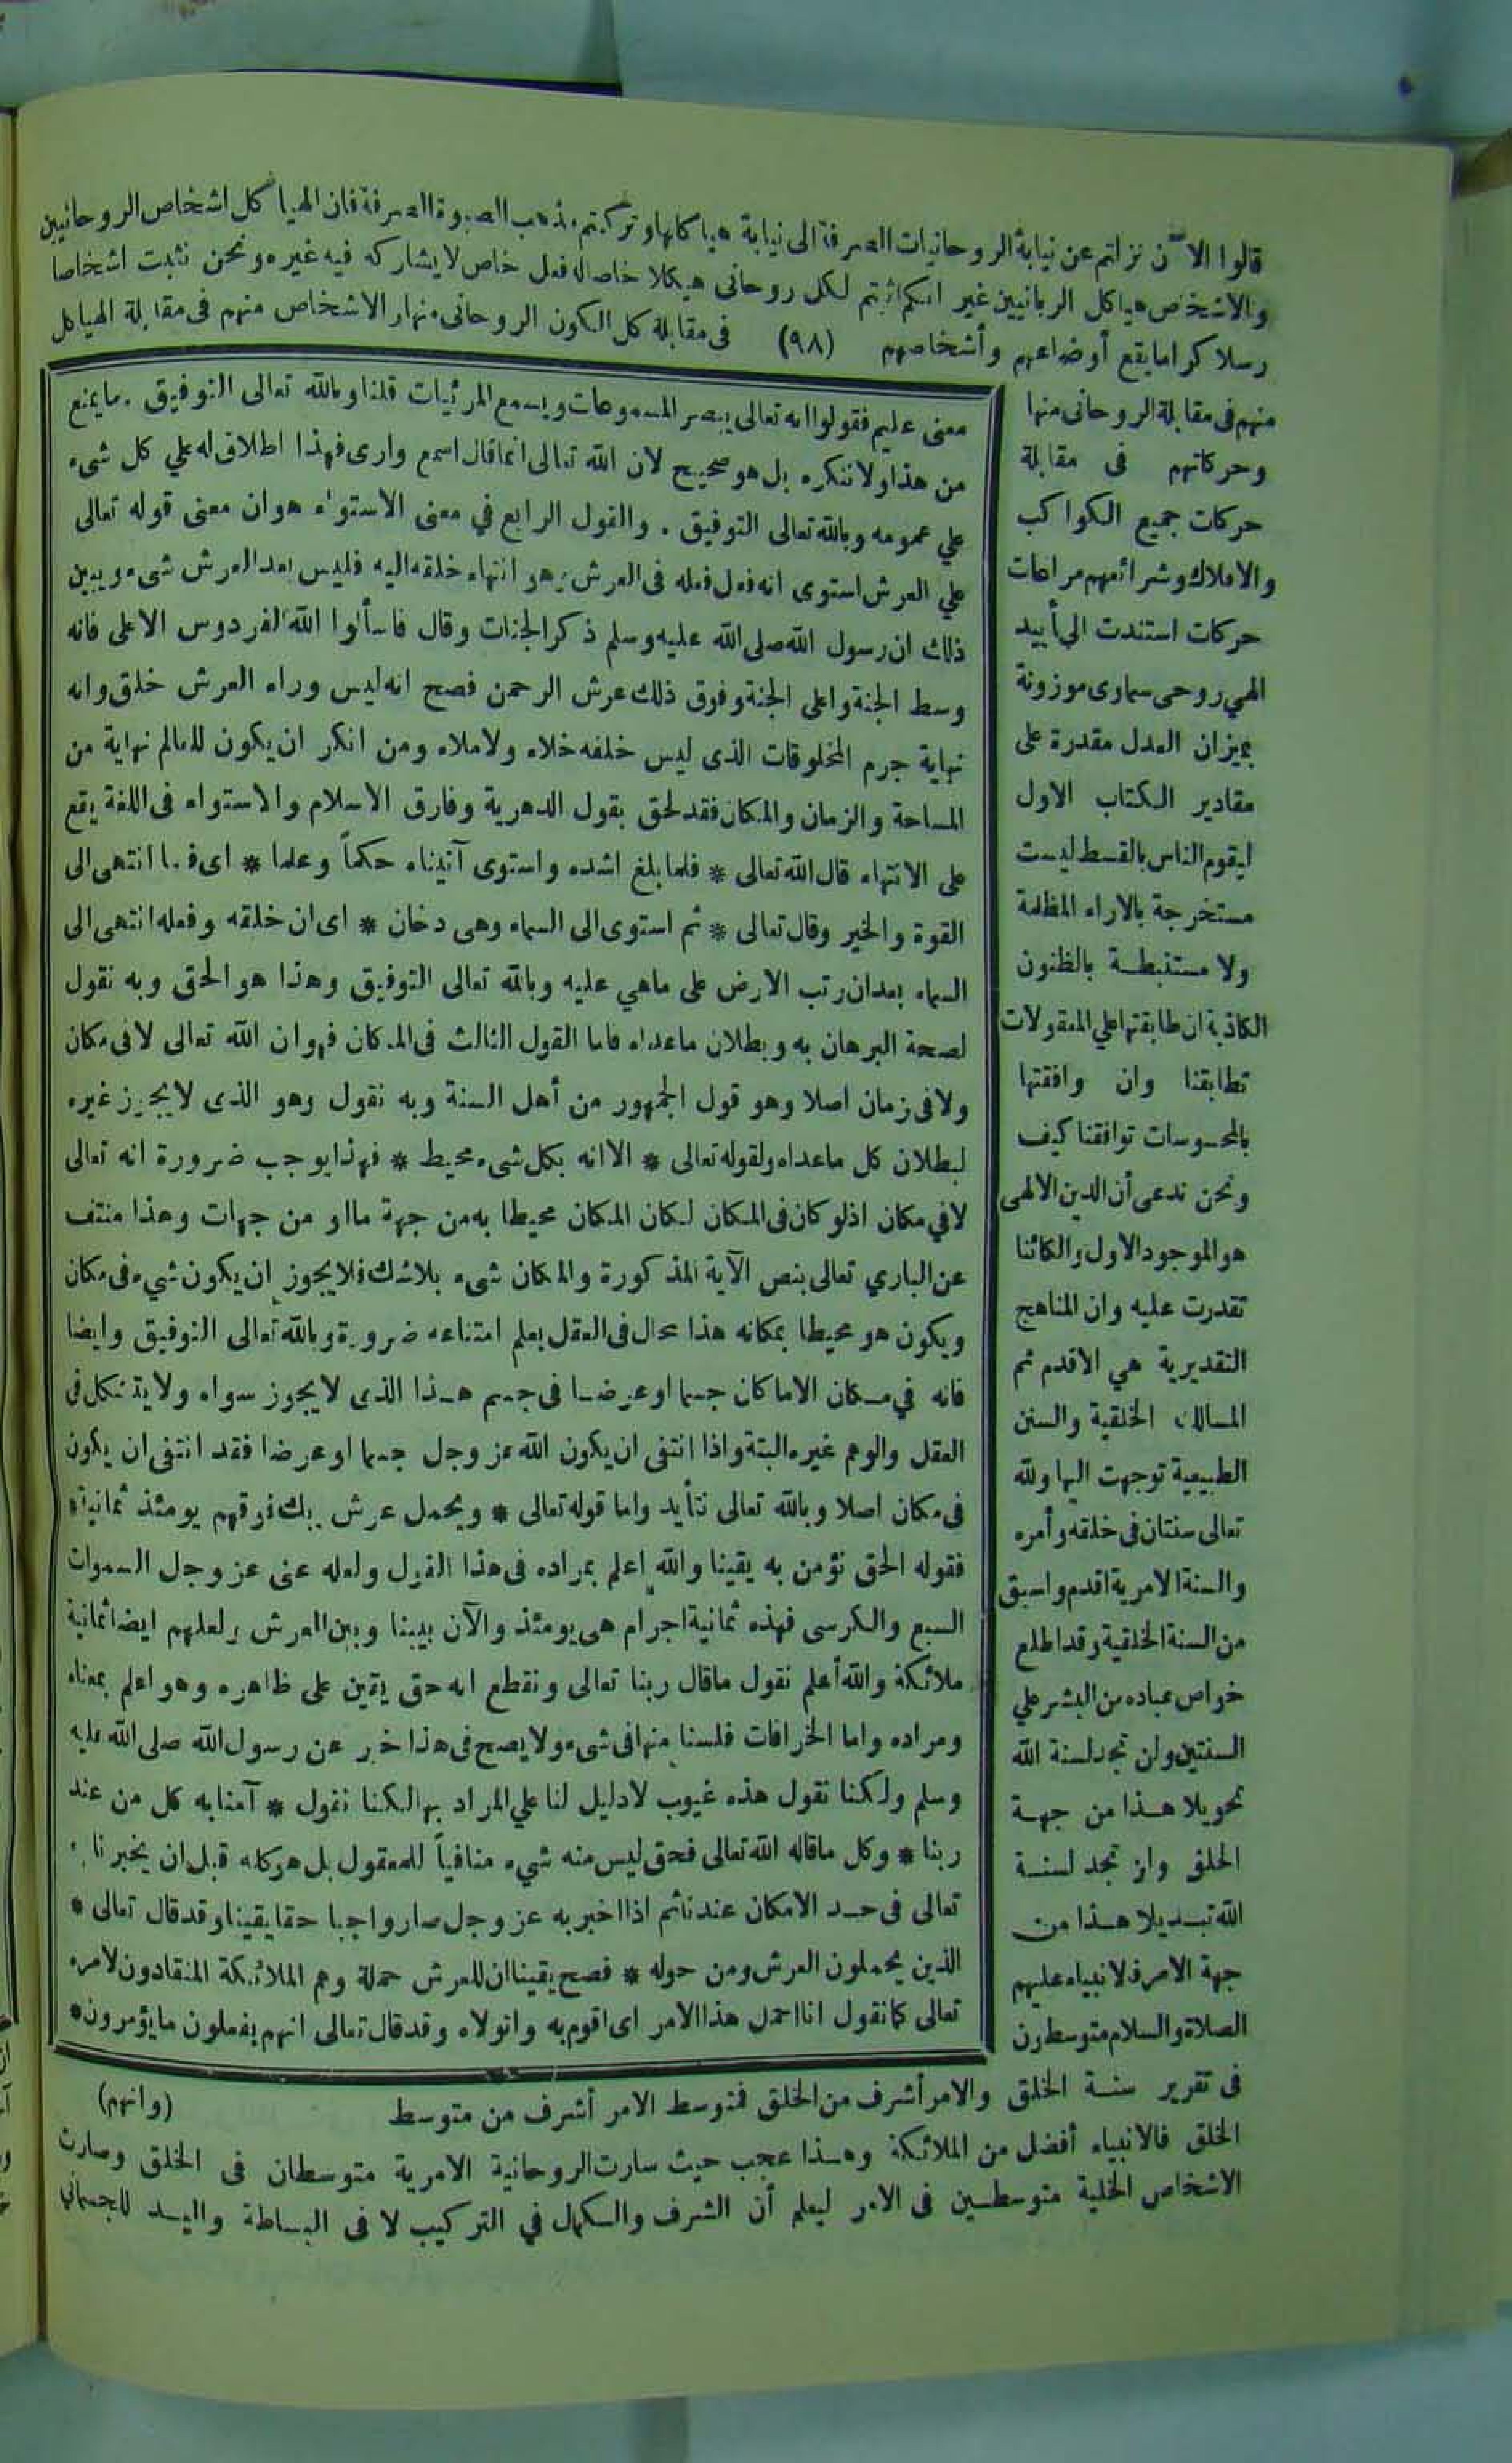 قالوا الآن نزلتم عن نيابة الروحانيات الصرفة الى نيابة هياكلها وتركتم مذهب الصبوة الصرفة فان الهياكل اشخاص الروحانيين
والاشخاص هياكل الربانيين غير انكم اثبتم لكل روحانى هيكلا خاصا له فعل خاص لا يشاركه فيه غيره ونحن نثبت اشخاصا
رسلا كراما يقع أوضاعهم وأشخاصهم (٩٨) فى مقابلة كل الكون الروحانى منهار الاشخاص منهم فى مقابلة الهياكل
منهم فى مقابلة الروحانى منها
وحركاتهم فى مقابلة
حركات جميع الكواكب
والافلاك وشرائعهم مراعات
حركات استندت الى تأييد
الهي روحى سماوى موزونة
بميزان العدل مقدرة على
مقادير الكتاب الاول
ليقوم الناس بالقسط ليست
مستخرجة بالاراء المظلمة
ولا مستنبطة بالظنون
الكاذبة ان طابقتها علي المعقولات
تطابقنا وان وافقتها
بالمحسوسات توافقنا كيف
ونحن ندعى أن الدين الالهى
هو الموجود الاول والكائنا
تقدرت عليه وان المناهج
التقديرية هي الاقدم ثم
المسالك الخلقية والسنن
الطبيعية توجهت اليها ولله
تعالى سنتان فى خلقه وأمره
والسنة الامرية اقدم واسبق
من السنة الخلقية وقد اطلع
خواص عباده من البشر علي
السنتين ولن تجد لسنة الله
تحويلا هذا من جهة
الخلق ولن تجد لسنة
الله تبديلا هذا من
جهة الامر فالانبياء عليهم
الصلاة والسلام متوسطون
معنى عليم فقولوا انه تعالى يبصر المسموعات ويسمع المرئيات قلنا وبالله تعالى التوفيق . ما يمنع
من هذا ولا ننكره بل هو صحيح لان الله تعالى انما قال اسمع وارى فهذا اطلاق له علي كل شىء
علي عمومه وبالله تعالى التوفيق . والقول الرابع في معنى الاستواء هو ان معنى قوله تعالى
علي العرش استوى انه فعل فعله فى العرش وهو انتهاء خلقه اليه فليس بعد العرش شىء ويبين
ذلك ان رسول الله صلى الله عليه وسلم ذكر الجنات وقال فاسألوا الله الفردوس الاعلى فانه
وسط الجنة واعلى الجنة وفوق ذلك عرش الرحمن فصح انه ليس وراء العرش خلق وانه
نهاية جرم المخلوقات الذى ليس خلفه خلاء ولاملاء ومن انكر ان يكون للعالم نهاية من
المساحة والزمان والمكان فقد لحق بقول الدهرية وفارق الاسلام والاستواء فى اللغة يقع
على الانتهاء قال الله تعالى * فلما بلغ اشده واستوى آتيناه حكماً وعلما * اى فلما انتهى الى
القوة والخير وقال تعالى * ثم استوى الى السماء وهى دخان * اى ان خلقه وفعله انتهى الى
السماء بعد ان رتب الارض على ماهي عليه وبالله تعالى التوفيق وهذا هو الحق وبه نقول
لصحة البرهان به وبطلان ماعداه فاما القول الثالث فى المكان فهو ان الله تعالى لا فى مكان
ولا فى زمان اصلا وهو قول الجمهور من أهل السنة وبه نقول وهو الذى لا يجوز غيره
لبطلان كل ماعداه ولقوله تعالى * الا انه بكل شىء محيط * فهذا يوجب ضرورة انه تعالى
لا في مكان اذ لو كان فى المكان لكان المكان محيطا به من جهة ما او من جهات وهذا منتف
عن الباري تعالى بنص الآية المذكورة والمكان شىء بلاشك فلا يجوز ان يكون شيء فى مكان
ويكون هو محيطا بمكانه هذا محال فى العقل يعلم امتناعه ضرورة وبالله تعالى التوفيق وايضا
فانه في مكان الا ماكان جسما او عرضا فى جسم هذا الذى لا يجوز سواه ولا يتشكل فى
العقل والوهم غيره البتة واذا انتفى ان يكون الله عز وجل جسما او عرضا فقد انتفى ان يكون
فى مكان اصلا وبالله تعالى نتأيد واما قوله تعالى * ويحمل عرش ربك فوقهم يومئذ ثمانية *
فقوله الحق نؤمن به يقينا والله اعلم بمراده فى هذا القول ولعله عنى عز وجل السموات
السبع والكرسى فهذه ثمانية اجرام هى يومئذ والآن بيننا وبين العرش ولعلهم ايضا ثمانية
ملائكة والله أعلم نقول ماقال ربنا تعالى ونقطع انه حق يقين على ظاهره وهو اعلم بمعناه
ومراده واما الخرافات فلسنا منها فى شىء ولا يصح فى هذا خبر عن رسول الله صلى الله عليه
وسلم ولكنا نقول هذه غيوب لادليل لنا علي المراد بها لكنا نقول * آمنا به كل من عند
ربنا * وكل ماقاله الله تعالى فحق ليس منه شيء منافياً للمعقول بل هو كله قبل ان يخبرنا به
تعالى فى حد الامكان عندنا ثم اذا اخبر به عز وجل صار واجبا حقا يقينا وقد قال تعالى *
الذين يحملون العرش ومن حوله * فصح يقينا ان للعرش حملة وهم الملائكة المنقادون لامره
تعالى كما نقول انا احمل هذا الامر اى اقوم به واتولاه وقد قال تعالى انهم يفعلون ما يؤمرون *
فى تقرير سنة الخلق والامر أشرف من الخلق فمتوسط الامر أشرف من متوسط (وانهم)
الخلق فالانبياء أفضل من الملائكة وهذا عجب حيث سارت الروحانية الامرية متوسطان فى الخلق وصارت
الاشخاص الخلية متوسطين فى الامر ليعلم أن الشرف والكمال في التركيب لا فى البساطة واليد للجسمانى